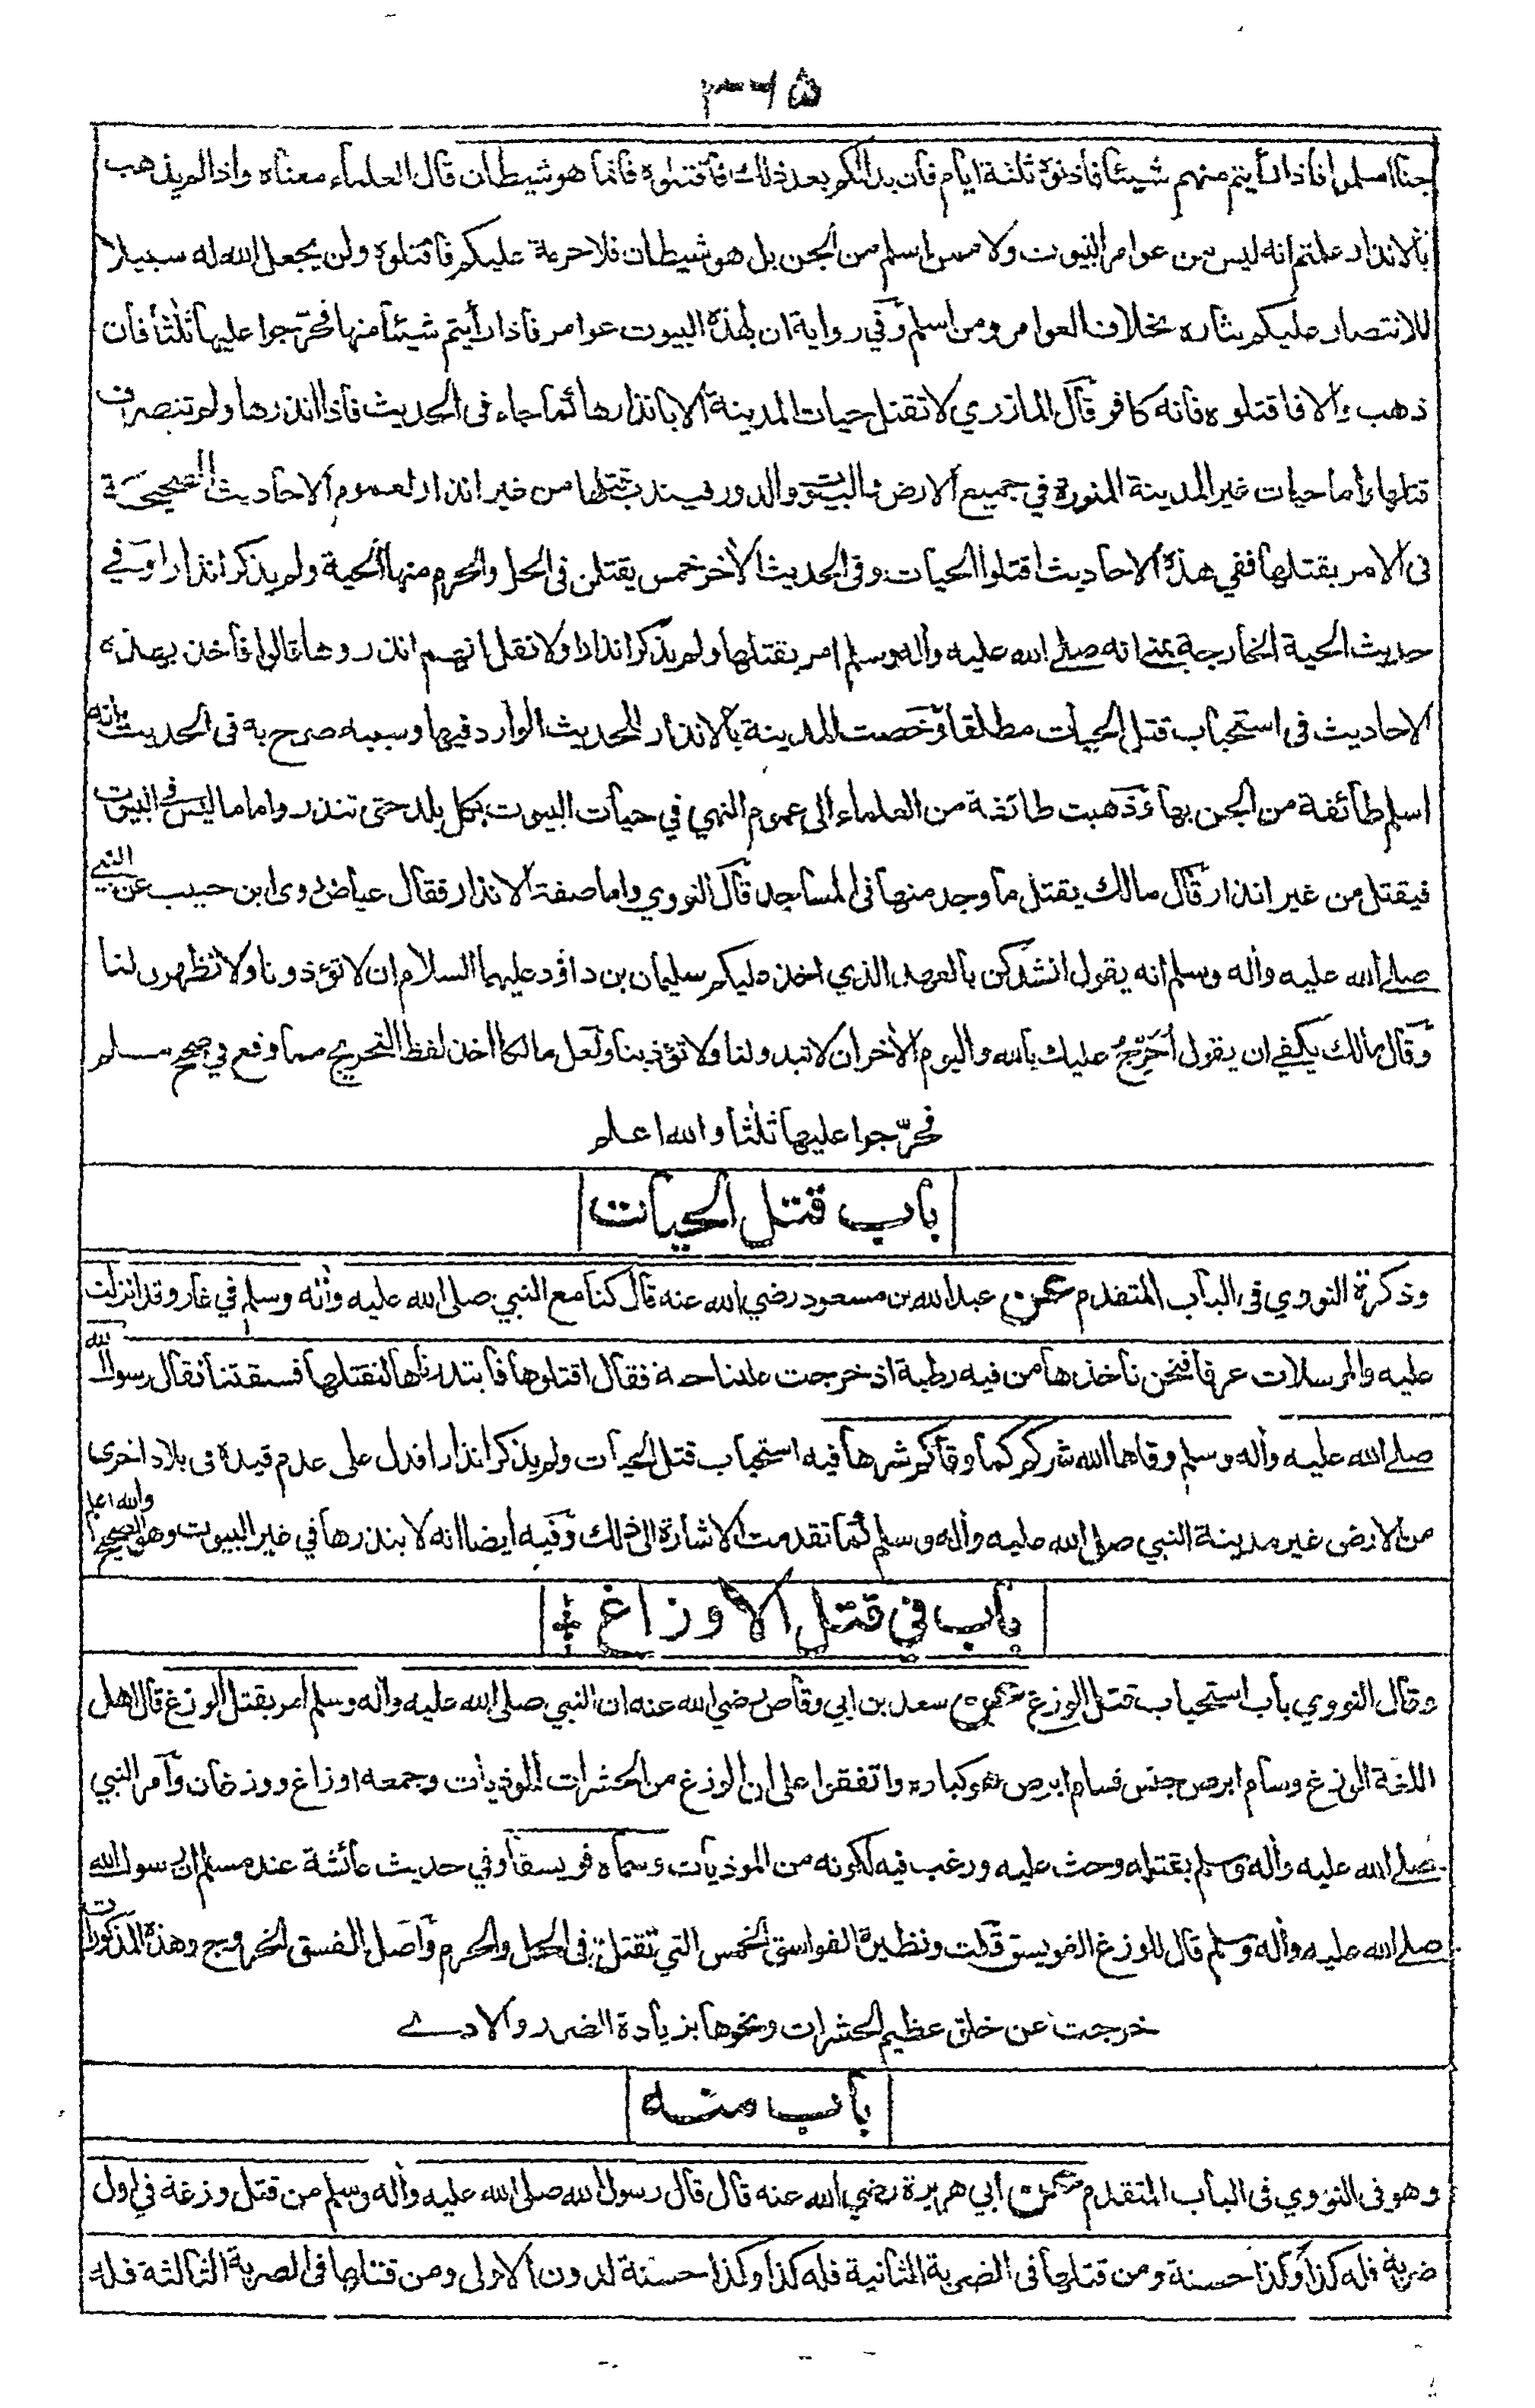 ٣٦٥
جنا اسلموا فاذا رأيتم منهم شيئا فاذنوه ثلثة ايام فان بدا لكم بعد ذلك فاقتلوه فانما هو شيطان قال العلماء معناه واذا لم يذهب
بالانذار علمتم انه ليس من عوامر البيوت ولا ممن اسلم من الجن بل هو شيطان فلا حرمة عليكم فاقتلوه ولن يجعل الله له سبيلا
للانتصار عليكم بثاره بخلاف العوامر ومن اسلم وفي رواية ان لهذه البيوت عوامر فاذا رأيتم شيئا منها فحرّجوا عليها ثلثا فان
ذهب والا فاقتلوه فانه كافر قال المازري لا تقتل حيات المدينة الا بانذارها كما جاء فى الحديث فاذا انذرها ولم تنصرف
قتلها واما حيات غير المدينة المنورة في جميع الارض والبيوت والدور فيندب قتلها من غير انذار لعموم الاحاديث الصحيحة
فى الامر بقتلها ففي هذه الاحاديث اقتلوا الحيات وفى الحديث الأخر خمس يقتلن فى الحل والحرم منها الحية ولم يذكر انذارا وفي
حديث الحية الخارجة بمنى انه صلى الله عليه وأله وسلم امر بقتلها ولم يذكر انذارا ولا نقل انهم انذروها قالوا فاخذ بهذه
الاحاديث فى استحباب قتل الحيات مطلقا وخصت المدينة بالانذار للحديث الوارد فيها وسببه صرح به فى الحديث بانه
اسلم طائفة من الجن بها وذهبت طائفة من العلماء الى عموم النهي في حيات البيوت بكل بلد حتى تنذر واما ما ليس فى البيوت
فيقتل من غير انذار قال مالك يقتل ما وجد منها فى المساجد قال النووي واما صفة الانذار فقال عياض روى ابن حبيب عن النبي
صلى الله عليه وأله وسلم انه يقول انشدكن بالعهد الذي اخذ عليكم سليمان بن داؤد عليهما السلام ان لا تؤذونا ولا تظهرن لنا
وقال مالك يكفي ان يقول أحرّج عليك بالله واليوم الأخر ان لا تبدو لنا ولا تؤذينا ولعل مالكا اخذ لفظ التحريج مما وقع في صحيح مسلم
فحرّجوا عليها ثلثا والله اعلم
باب قتل الحيات
وذكره النووي فى الباب المتقدم عن عبد الله بن مسعود رضي الله عنه قال كنا مع النبي صلى الله عليه وأله وسلم في غار وقد انزلت
عليه والمرسلات عرفا فنحن نأخذها من فيه رطبة اذ خرجت علينا حية فقال اقتلوها فابتدرناها لنقتلها فسبقتنا فقال رسول الله
صلى الله عليه وأله وسلم وقاها الله شركم كما وقاكم شرها فيه استحباب قتل الحيات ولم يذكر انذارا فدل على عدم قيده فى بلاد اخرى
من الارض غير مدينة النبي صلى الله عليه وأله وسلم كما تقدمت الاشارة الى ذلك وفيه ايضا انه لا ينذرها في غير البيوت وهو الصحيح والله اعلم
باب في قتل الاوزاغ
وقال النووي باب استحباب قتل الوزغ عن سعد بن ابي وقاص رضي الله عنه ان النبي صلى الله عليه وأله وسلم امر بقتل الوزغ قال اهل
اللغة الوزغ وسام ابرص جنس فسام ابرص هو كباره واتفقوا على ان الوزغ من الحشرات الموذيات وجمعه اوزاغ ووزغان وأمر النبي
صلى الله عليه وأله وسلم بقتله وحث عليه ورغب فيه لكونه من الموذيات وسماه فويسقا وفي حديث عائشة عند مسلم ان رسول الله
صلى الله عليه وأله وسلم قال للوزغ الفويسق قلت ونظيره الفواسق الخمس التي تقتل فى الحل والحرم واصل الفسق الخروج وهذه المذكورات
خرجت عن خلق عظيم الحشرات ونحوها بزيادة الضرر والاذى
باب منه
وهو فى النووي فى الباب المتقدم عن ابي هريرة رضي الله عنه قال قال رسول الله صلى الله عليه وأله وسلم من قتل وزغة في اول
ضربة فله كذا وكذا حسنة ومن قتلها فى الضربة الثانية فله كذا وكذا حسنة لدون الاولى ومن قتلها فى الضربة الثالثة فله